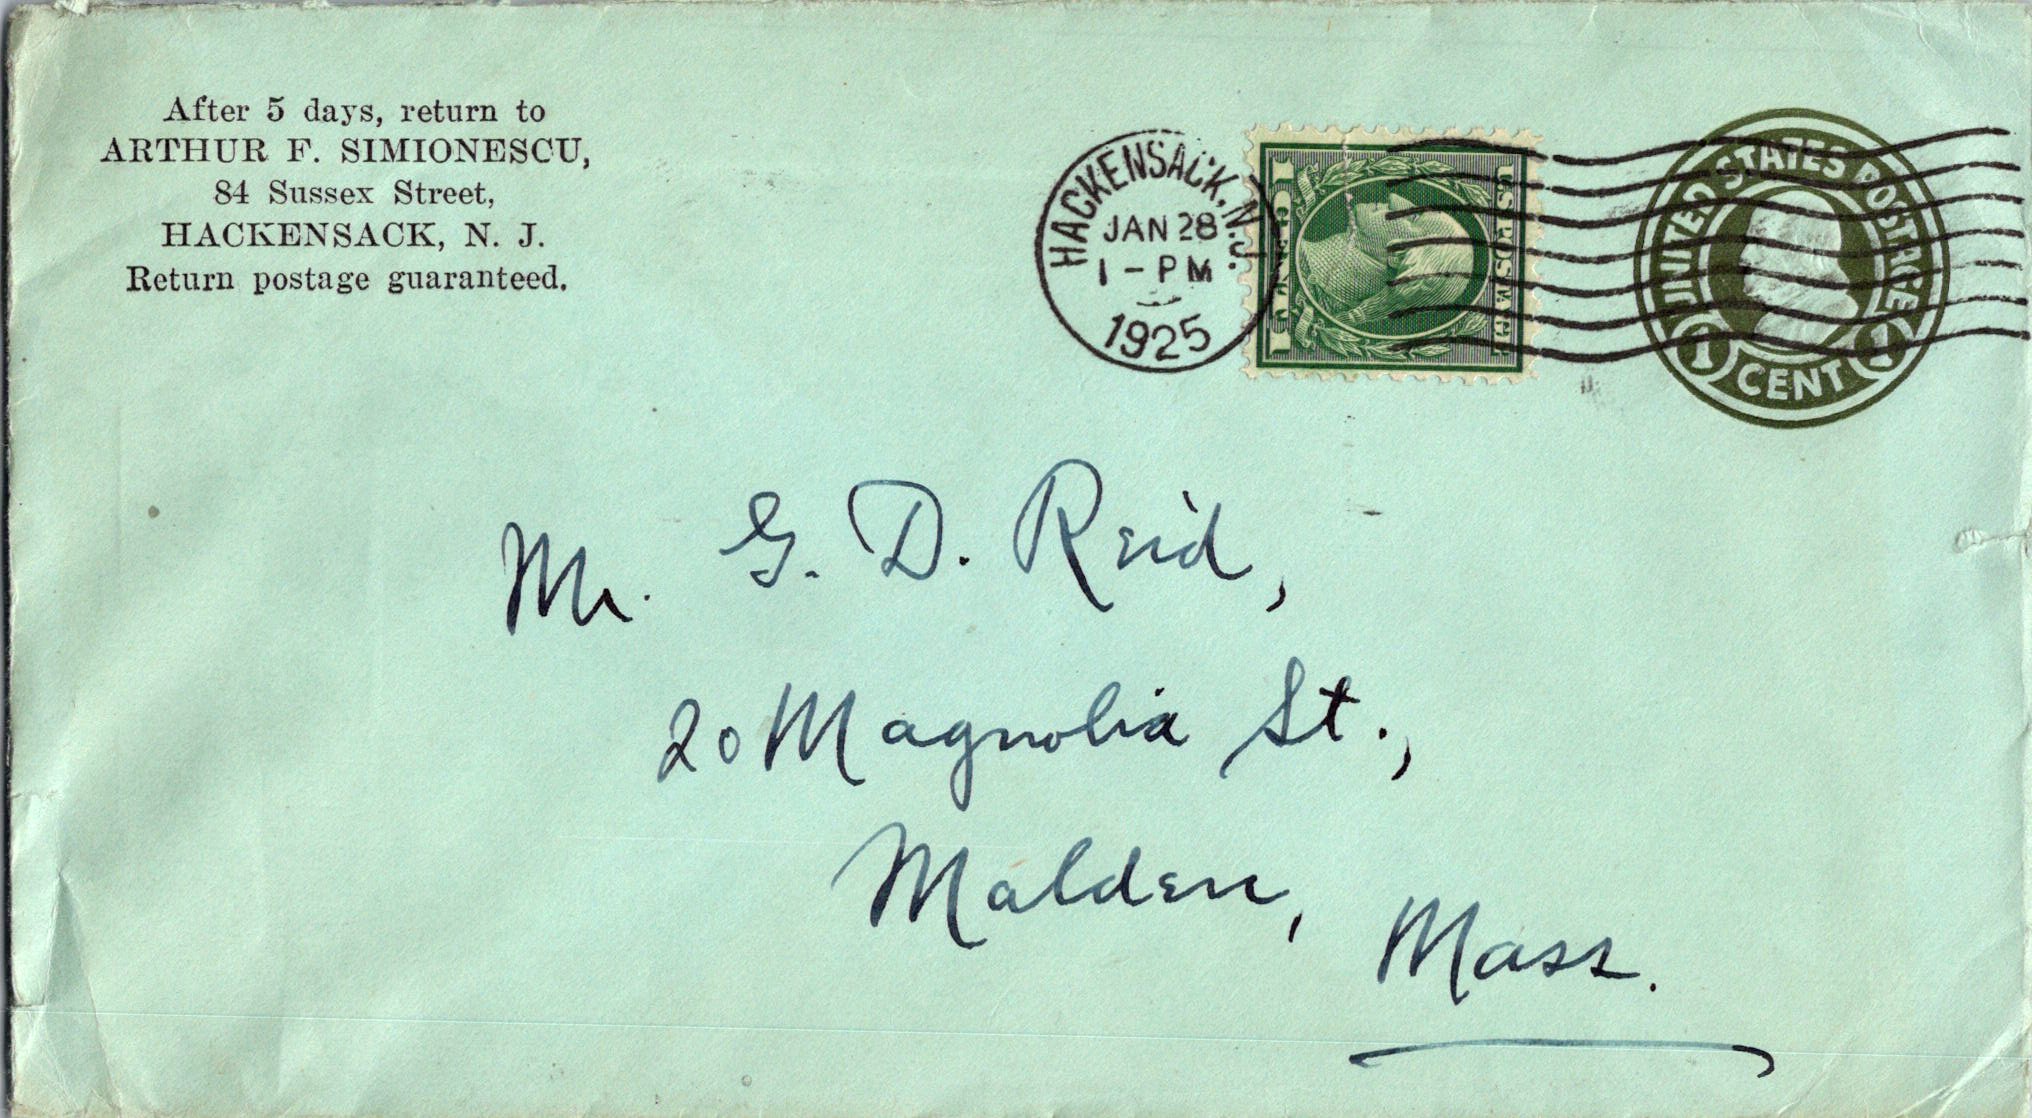 After 5 days, return to
ARTHUR F. SIMIONESCU,
84 Sussex Street,
HACKENSACK, N. J.
Return postage guaranteed.
HACKENSACK, N.J.
JAN 28
1 - PM
1925
U.S. POSTAGE
1 CENT 1
UNITED STATES POSTAGE
1 CENT 1
Mr. G. D. Reid,
20 Magnolia St.,
Malden, Mass.